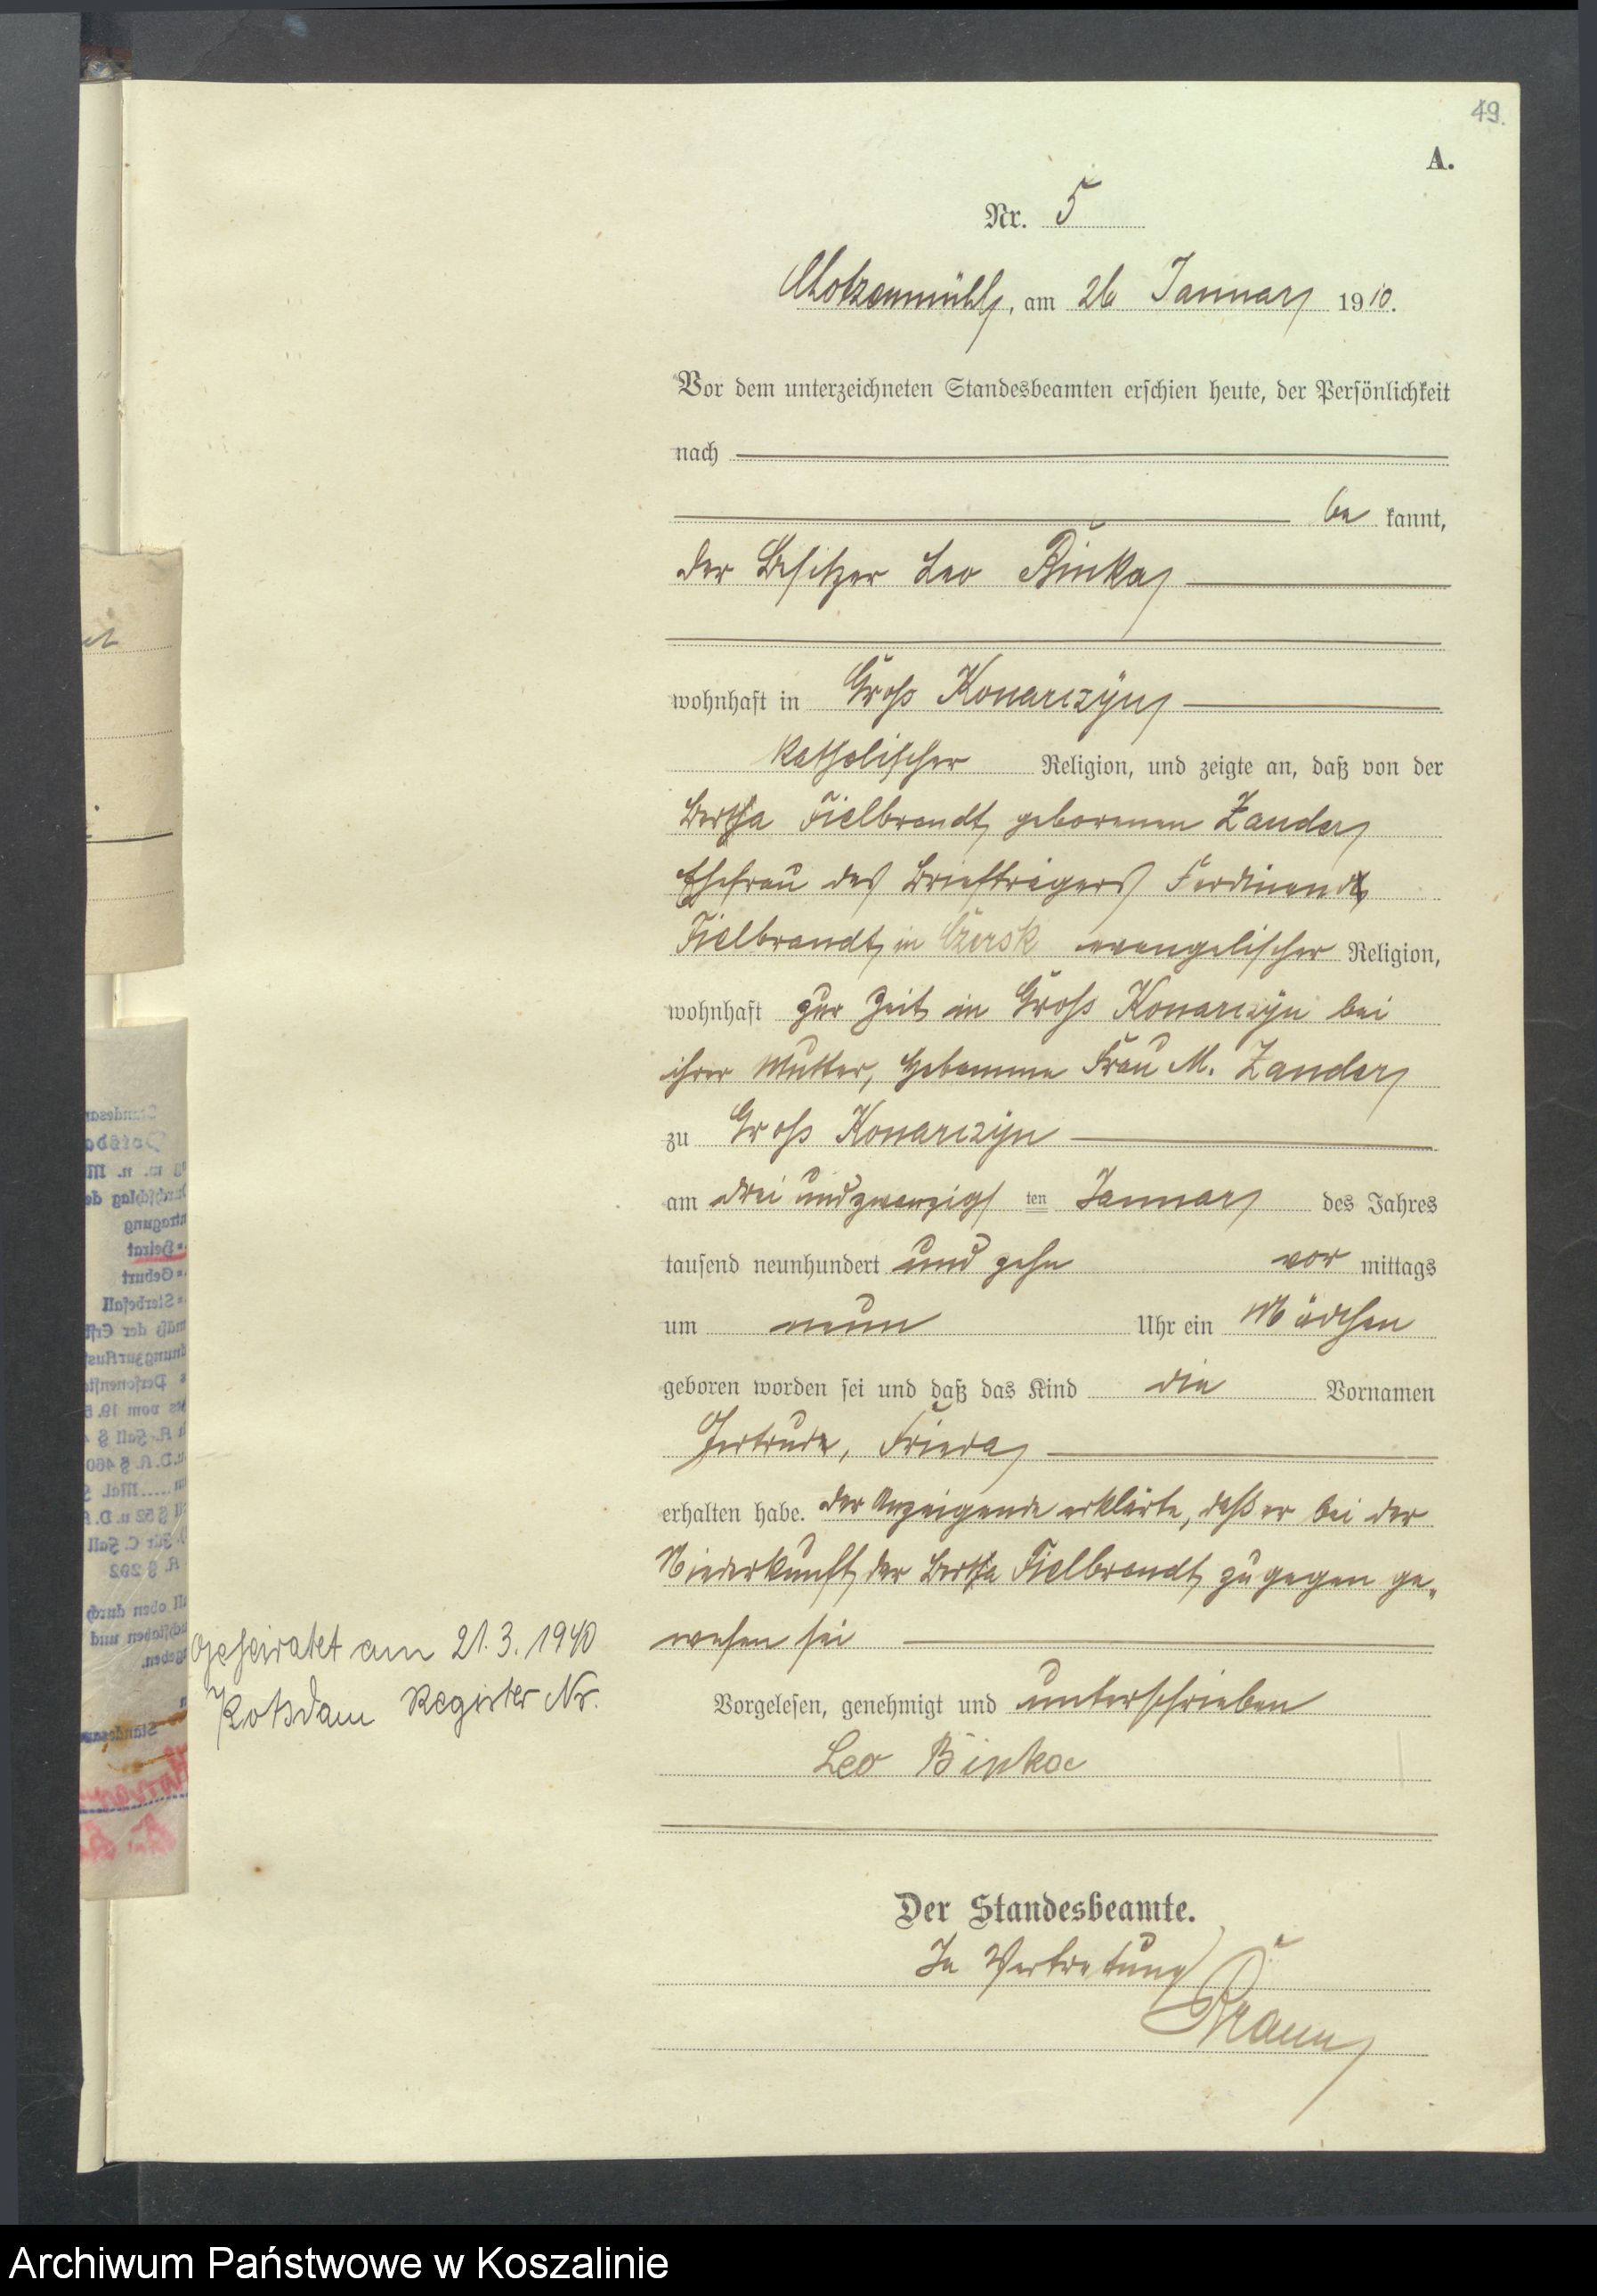 49.
A.
Nr. 5
Chotzenmühl, am 26 Januar 1910.
Vor dem unterzeichneten Standesbeamten erschien heute, der Persönlichkeit
nach
be kannt,
der Besitzer Leo Binka
wohnhaft in Groß Konarczyn
katholischer Religion, und zeigte an, daß von der
Bertha Fielbrandt, geborenen Zander
Ehefrau des Briefträgers Ferdinand
Fielbrandt, in Czersk evangelischer Religion,
wohnhaft zur Zeit in Groß Konarczyn bei
ihrer Mutter, Hebamme Frau M. Zander
zu Groß Konarczyn
am drei und zwanzigs ten Januar des Jahres
tausend neunhundert und zehn vor mittags
um neun Uhr ein Mädchen
geboren worden sei und daß das Kind die Vornamen
Gertrude, Frieda
erhalten habe. Der Anzeigende erklärte, daß er bei der
Niederkunft der Bertha Fielbrandt zugegen ge-
wesen sei
Vorgelesen, genehmigt und unterschrieben
Leo Binka
Der Standesbeamte.
In Vertretung
Geheiratet am 21.3.1940
Potsdam Register Nr.
Archiwum Państwowe w Koszalinie